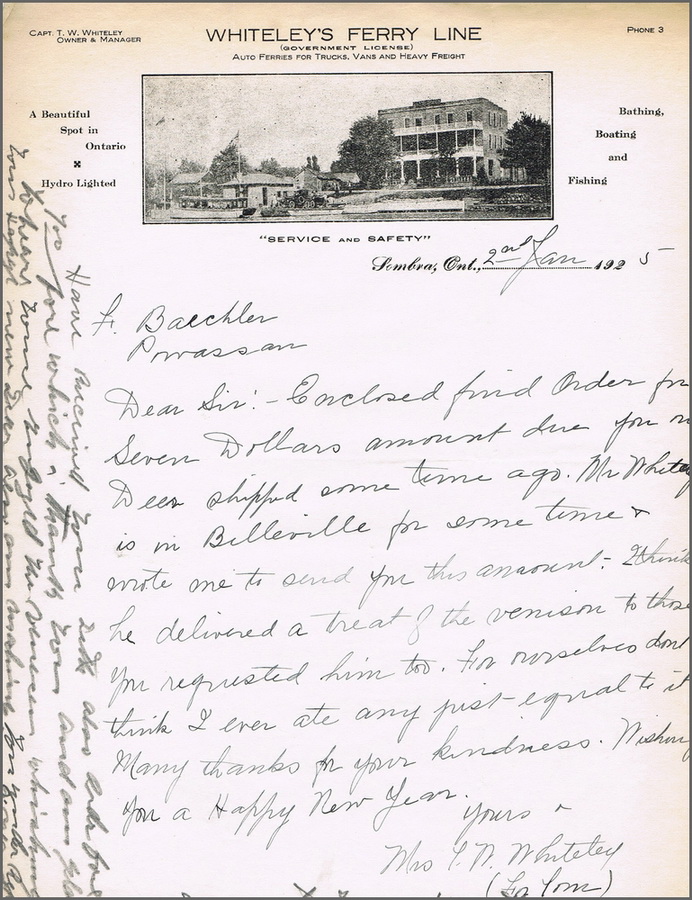 CAPT. T. W. WHITELEY
OWNER & MANAGER
WHITELEY'S FERRY LINE
(GOVERNMENT LICENSE)
AUTO FERRIES FOR TRUCKS, VANS AND HEAVY FREIGHT
PHONE 3
A Beautiful
Spot in
Ontario
Hydro Lighted
Bathing,
Boating
and
Fishing
"SERVICE AND SAFETY"
Sombra, Ont., 2nd Jan 1925
F. Baechler
Powassan
Dear Sir:- Enclosed find Order for
Seven Dollars amount due you on
Deer shipped some time ago. Mr Whiteley
is in Billeville for some time &
wrote me to send you this amount- I think
he delivered a treat of the venison to those
you requested him too. For ourselves dont
think I ever ate any just equal to it
Many thanks for your kindness. Wishing
you a Happy New Year.
Yours
Mrs T. W. Whiteley
(For Tom)
Have received your
for which I thank you and am glad
to hear you the venison
new year